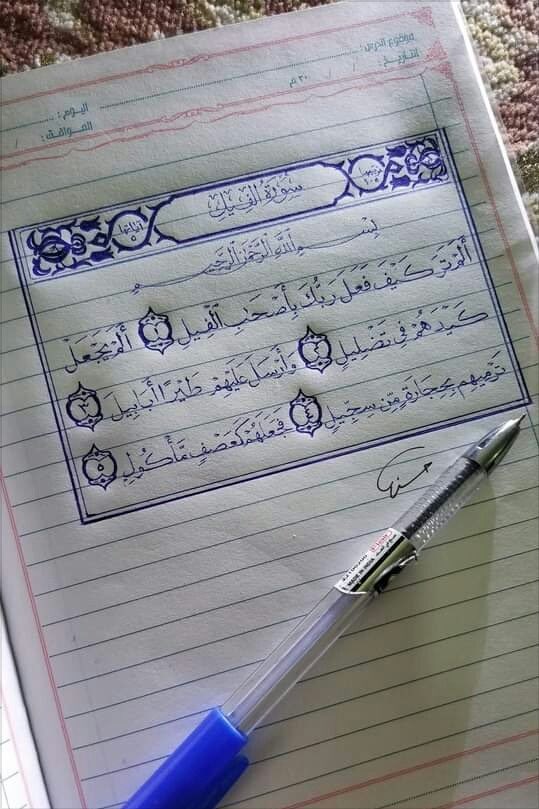 موضوع الدرس :
التاريخ : / / ٢٠ م
اليوم :
الموافق : /
سُورَةُ الفِيلِ
آياتها ٥
بِسْمِ اللَّهِ الرَّحْمَٰنِ الرَّحِيمِ
أَلَمْ تَرَ كَيْفَ فَعَلَ رَبُّكَ بِأَصْحَابِ الْفِيلِ ١ أَلَمْ يَجْعَلْ
كَيْدَهُمْ فِي تَضْلِيلٍ ٢ وَأَرْسَلَ عَلَيْهِمْ طَيْرًا أَبَابِيلَ ٣
تَرْمِيهِم بِحِجَارَةٍ مِّن سِجِّيلٍ ٤ فَجَعَلَهُمْ كَعَصْفٍ مَّأْكُولٍ ٥
MADE IN INDIA